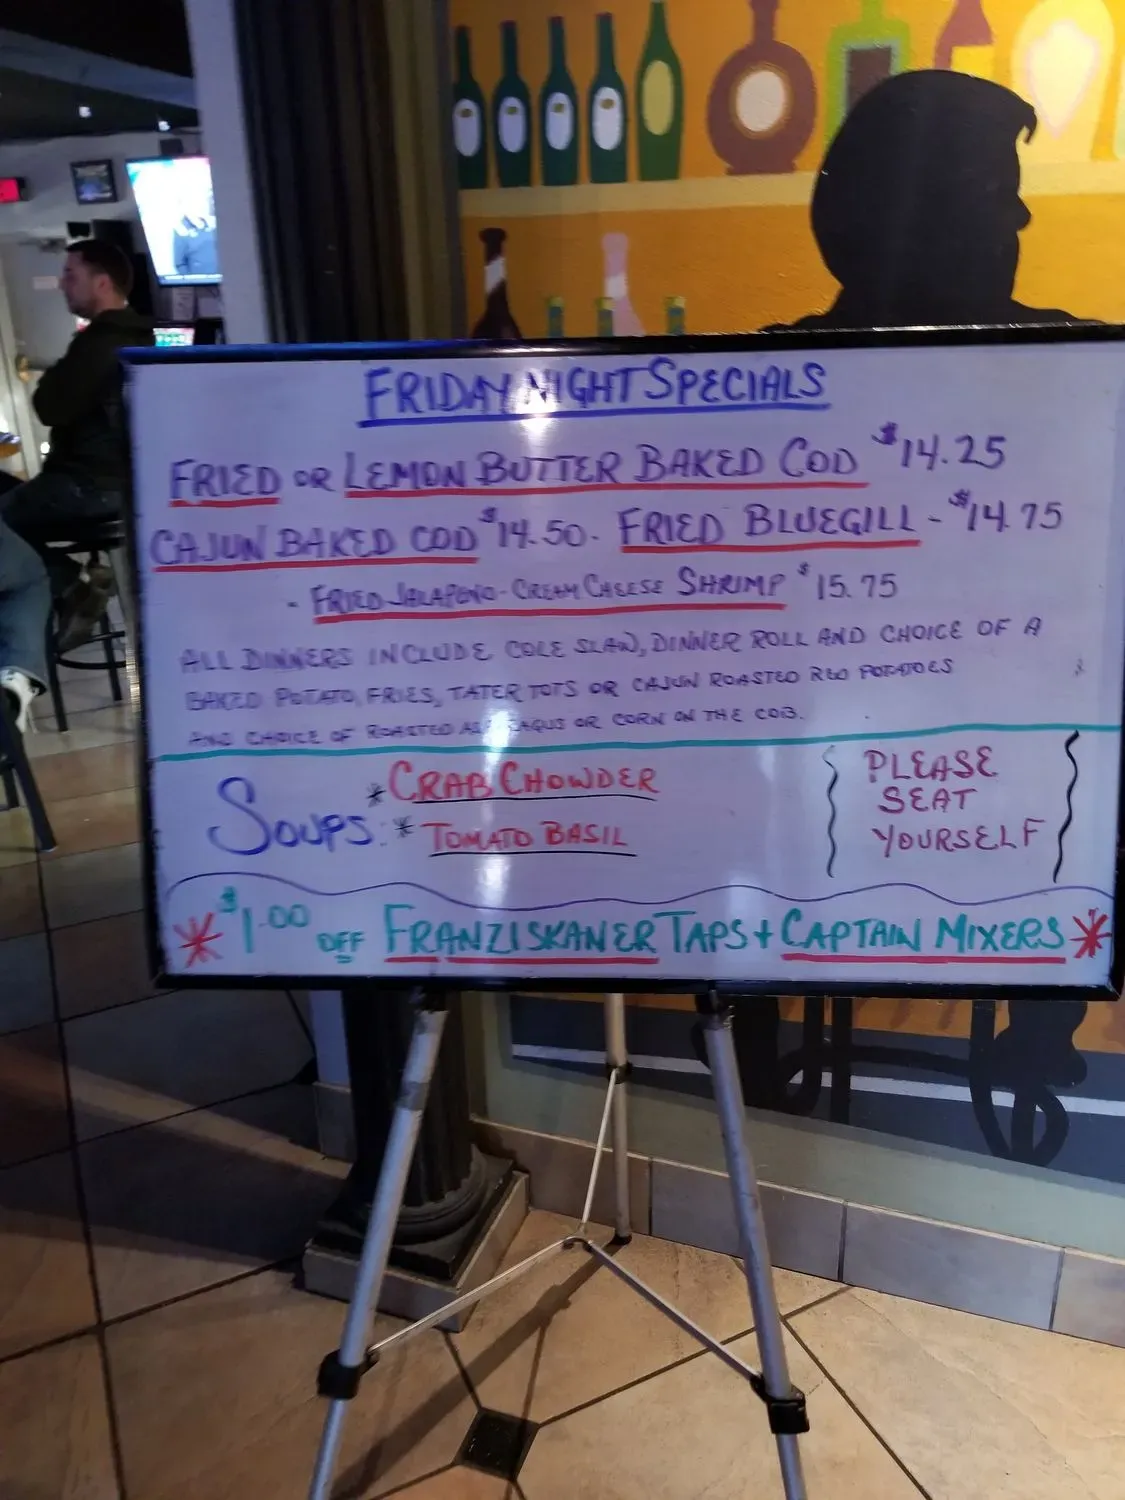 FRIDAY NIGHT SPECIALS
FRIED OR LEMON BUTTER BAKED COD $14.25
CAJUN BAKED COD $14.50 - FRIED BLUEGILL - $14.75
- FRIED JALAPENO-CREAM CHEESE SHRIMP $15.75
ALL DINNERS INCLUDE COLE SLAW, DINNER ROLL AND CHOICE OF A
BAKED POTATO, FRIES, TATER TOTS OR CAJUN ROASTED RED POTATOES
AND CHOICE OF ROASTED ASPARAGUS OR CORN ON THE COB.
SOUPS: * CRAB CHOWDER
* TOMATO BASIL
PLEASE
SEAT
YOURSELF
* $1.00 OFF FRANZISKANER TAPS + CAPTAIN MIXERS *